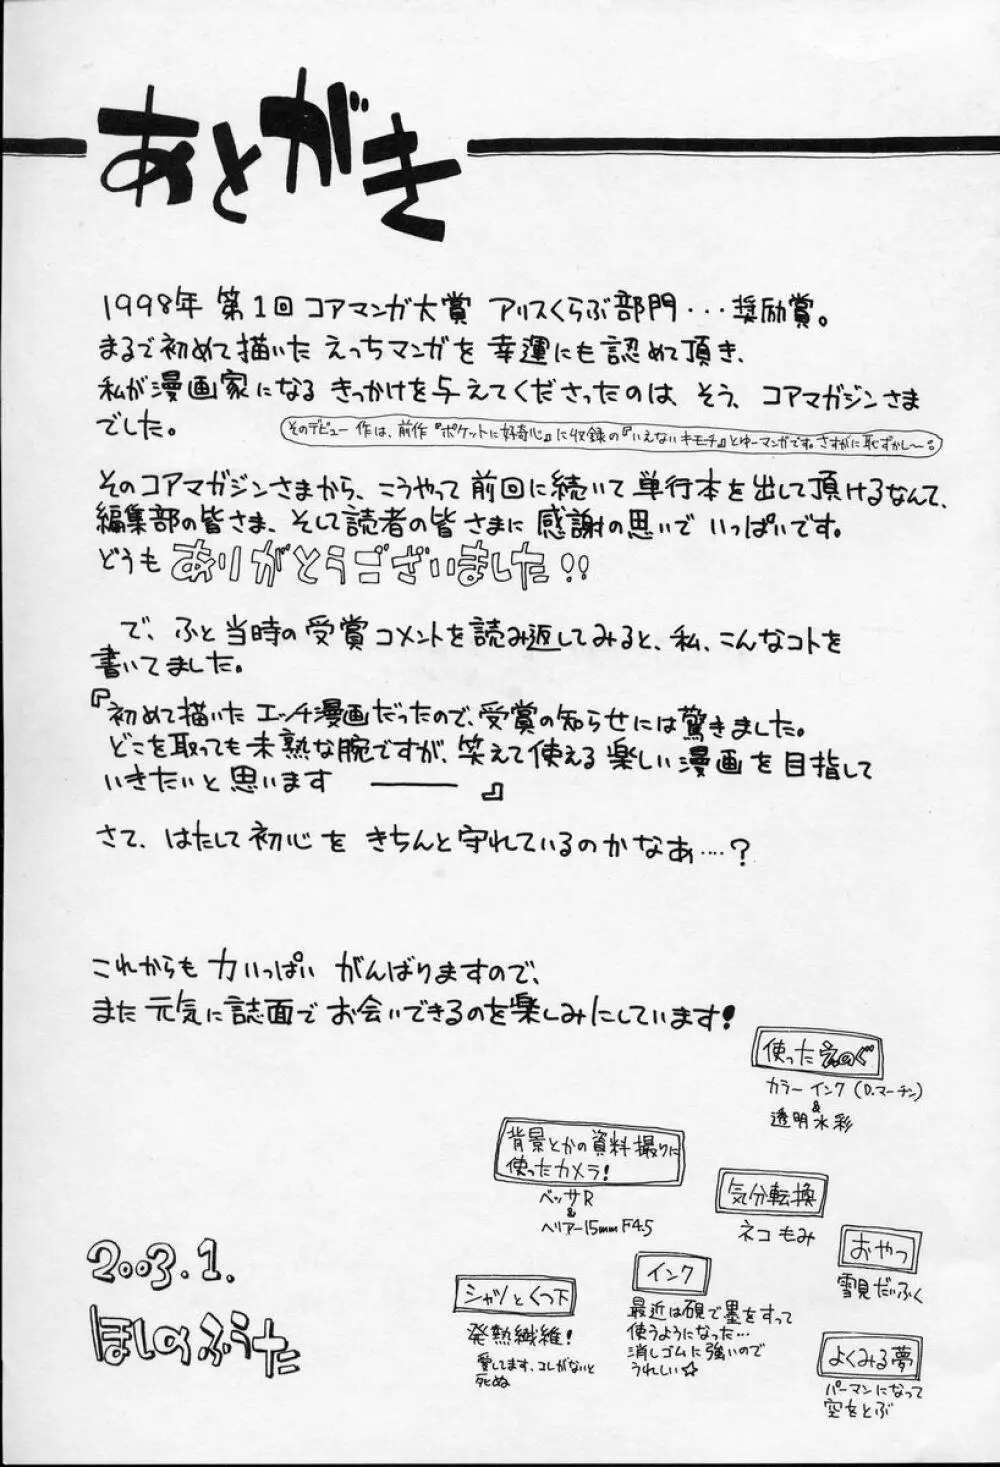 あとがき
1998年 第1回 コアマンガ大賞 アリスくらぶ部門・・・奨励賞。
まるで初めて描いた えっちマンガを 幸運にも 認めて頂き、
私が漫画家になる きっかけを与えてくださったのは、そう、コアマガジンさま
でした。
そのデビュー作は、前作『ポケットに好奇心』に収録の『いえないキモーチ』とゆーマンガです。さすがに恥ずかし〜。
そのコアマガジンさまから、こうやって前回に続いて 単行本を出して頂けるなんて、
編集部の皆さま、そして読者の皆さまに 感謝の思いで いっぱいです。
どうも ありがとうございました!!
で、ふと当時の受賞コメントを読み返してみると、私、こんなコトを
書いてました。
『初めて描いた エッチ漫画だったので、受賞の知らせには驚きました。
どこを取っても未熟な腕ですが、笑えて使える 楽しい漫画を目指して
いきたいと思います ――― 』
さて、はたして初心を きちんと守れているのかなぁ・・・・?
これからも 力いっぱい がんばりますので、
また元気に誌面で お会いできるのを楽しみにしています!
使ったえのぐ
カラーインク (D.マーチン)
&
透明水彩
背景とかの資料撮りに
使ったカメラ!
ベッサR
&
ヘリアー15mm F4.5
気分転換
ネコもみ
おやつ
雪見だいふく
インク
最近は硯で墨をすって
使うようになった…
消しゴムに強いので
うれしい☆
シャツとくつ下
発熱繊維!
愛してます、コレがないと
死ぬ
よくみる夢
パーマンになって
空をとぶ
2003.1.
ほしのふうた